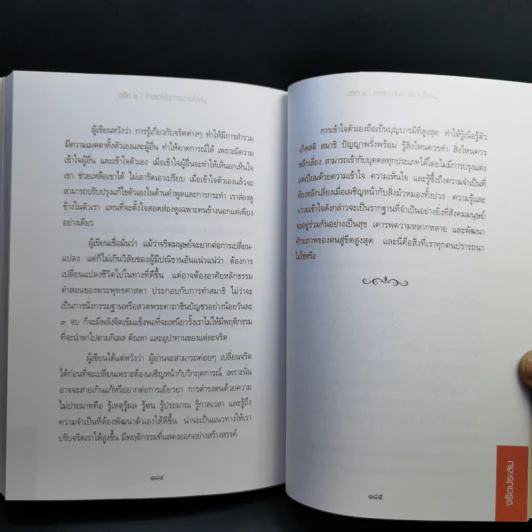 ผู้เขียนหวังว่า การรู้เกี่ยวกับจริตต่างๆ ทำให้มีการสำรวม
มีความเมตตาต่อตัวเองและผู้อื่น ทำให้คาดการณ์ได้ เพราะมีความ
เข้าใจผู้อื่น และเข้าใจตัวเอง เมื่อเข้าใจผู้อื่นจะทำให้เห็นอกเห็นใจ
เรา ช่วยเหลือเขาได้ ไม่เอารัดเอาเปรียบ เมื่อเข้าใจตัวเองแล้วจะ
สามารถปรับปรุงแก้ไขตัวเองในด้านคำพูดและการกระทำ เราส่องดู
ข้างในตัวเรา แทนที่จะตั้งใจสอดส่องดูเฉพาะคนข้างนอกแต่เพียง
อย่างเดียว
ผู้เขียนเชื่อมั่นว่า แม้ว่าจริตมนุษย์จะยากต่อการเปลี่ยน-
แปลง แต่ก็ไม่เกินวิสัยของผู้มีปณิธานอันแน่วแน่ว่า ต้องการ
เปลี่ยนแปลงชีวิตไปในทางที่ดีขึ้น แต่อาจต้องอาศัยหลักธรรม
คำสอนของพระพุทธศาสดา ประกอบกับการทำสมาธิ ไม่ว่าจะ
เป็นนั่งกรรมฐานหรือสวดพระคาถาชินบัญชรอย่างน้อยวันละ
๓ จบ ก็จะมีพลังจิตเข้มแข็งพอที่จะเหนี่ยวรั้งเราไม่ให้มีพฤติกรรม
ที่จะนำพาไปตามกิเลส ตัณหา และอุปาทานของแต่ละจริต
ผู้เขียนได้แต่หวังว่า ผู้อ่านจะสามารถค่อยๆ เปลี่ยนจริต
ได้ก่อนที่จะเปลี่ยนเพราะต้องเผชิญหน้ากับวิกฤตการณ์ เพราะนั่น
อาจจะสายเกินแก้หรือยากต่อการเยียวยา การดำรงตนด้วยความ
ไม่ประมาทคือ รู้เหตุรู้ผล รู้ตน รู้ประมาณ รู้กาลเวลา และรู้ถึง
ความจำเป็นที่ต้องพัฒนาตัวเองให้ดีขึ้น น่าจะเป็นแนวทางให้เรา
ปรับจริตเราให้สูงขึ้น มีพฤติกรรมที่แสดงออกอย่างสร้างสรรค์
๑๘๔
การเข้าใจตัวเองถือเป็นบุญบารมีที่สูงสุด ทำให้รู้เนื้อรู้ตัว
เกิดสติ สมาธิ ปัญญาพรั่งพร้อม รู้สิ่งไหนควรทำ สิ่งไหนควร
หลีกเลี่ยง สามารถเข้ากับบุคคลทุกประเภทได้โดยไม่มีการปรุงแต่ง
แต่เปี่ยมด้วยความเข้าใจ ความเห็นใจ และรู้ซึ้งถึงความจำเป็นที่
ต้องหลีกเลี่ยงเมื่อเผชิญหน้ากับสิ่งมัวหมองทั้งปวง ความรู้และ
ความเข้าใจดังกล่าวจะเป็นรากฐานที่จำเป็นอย่างยิ่งที่สังคมมนุษย์
จะอยู่ร่วมกันอย่างเป็นสุข เคารพความหลากหลาย และพัฒนา
ศักยภาพของตนสู่ขีดสูงสุด และนี่คือสิ่งที่เราทุกคนปรารถนา
ไม่ใช่หรือ
๑๘๕